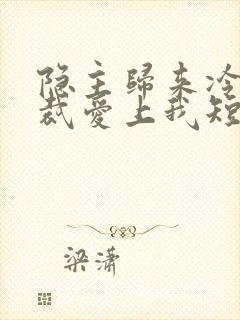 隐主歸来冷
裁爱上我短
梁潇